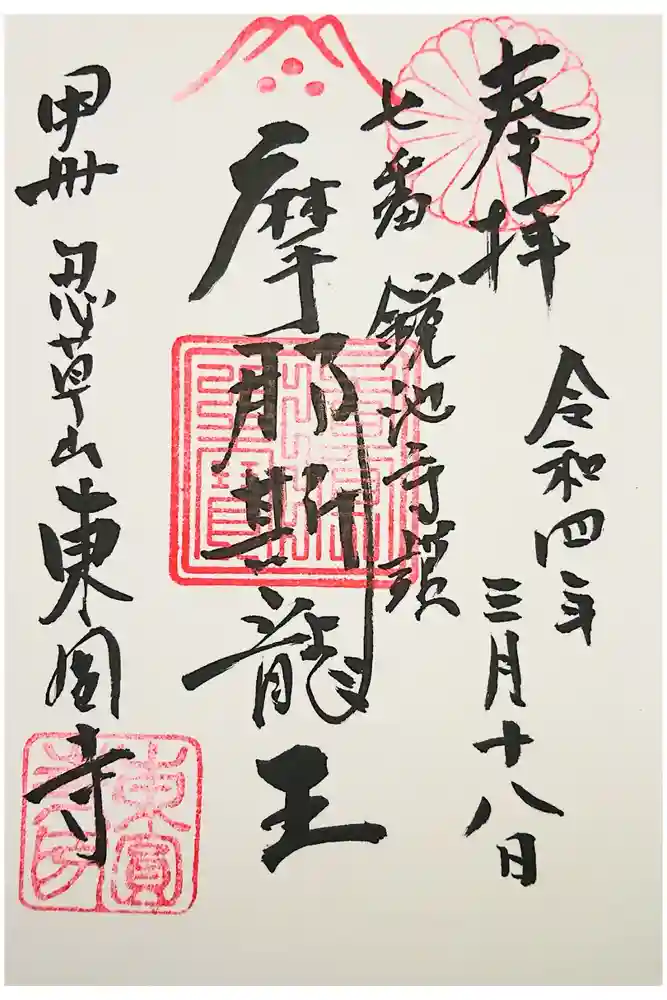 奉拝
令和四年
三月十八日
七番 鏡池守護
摩耶斯龍王
甲州 忍草山 東圓寺